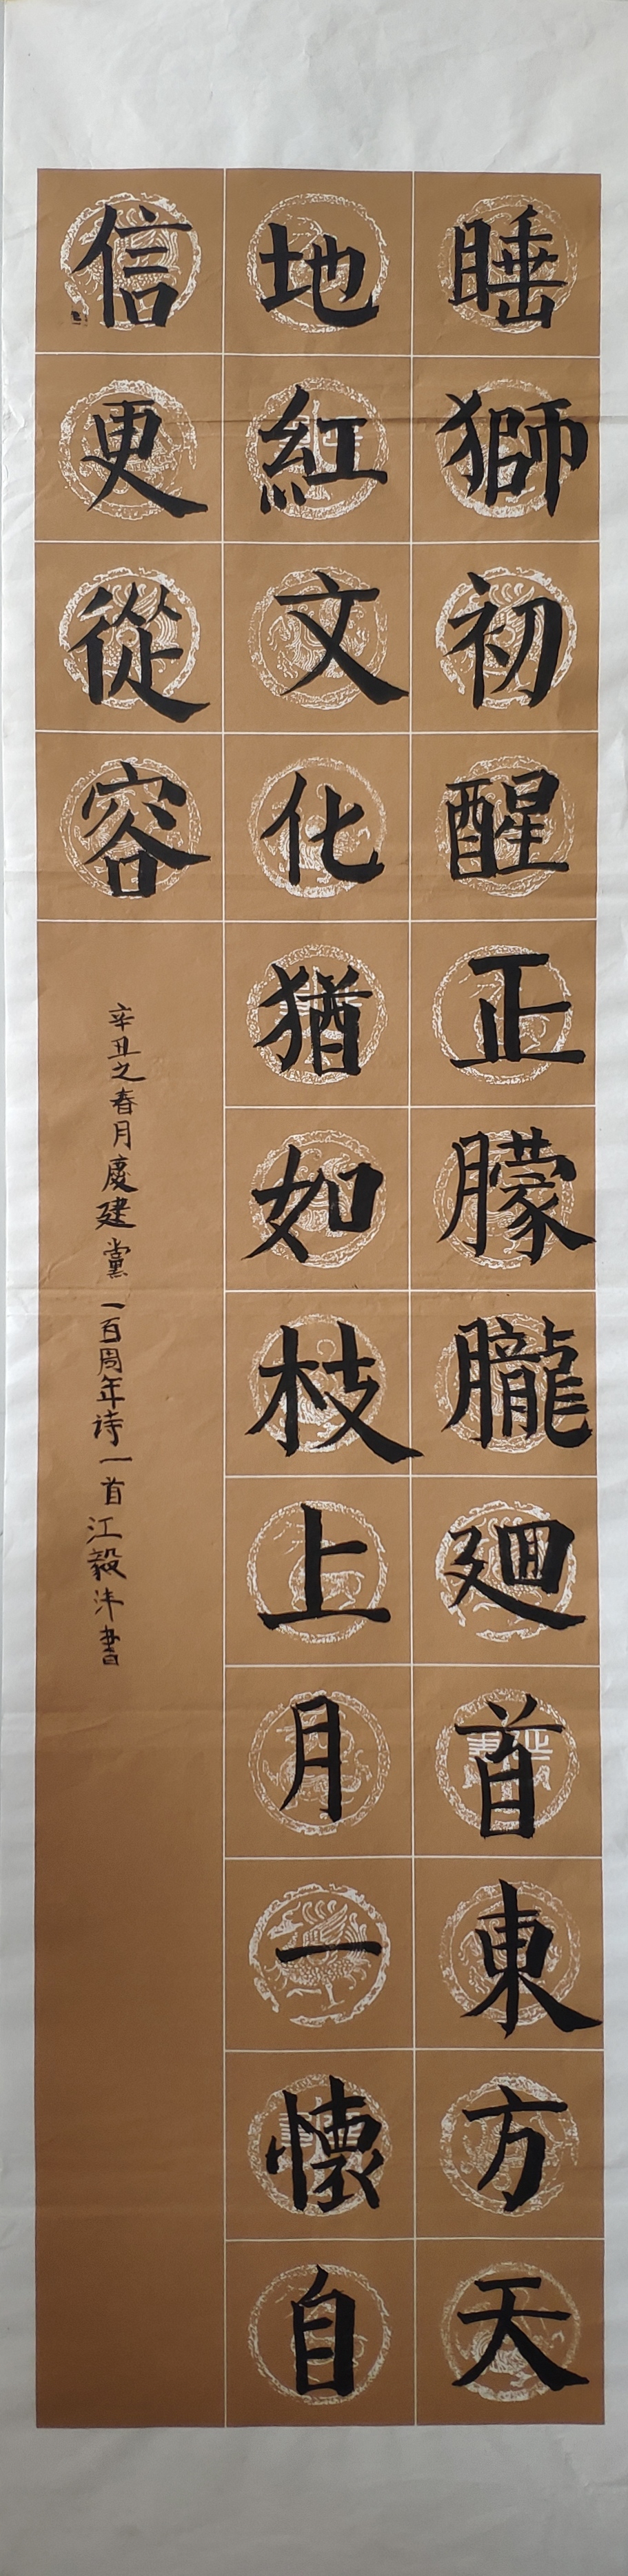 睡獅初醒正朦朧廻首東方天
地紅文化猶如枝上月一懷自
信更從容
辛丑之春月慶建黨一百周年诗一首江毅沣書